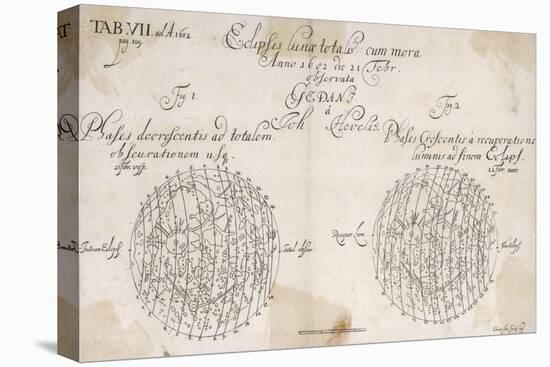 TAB. VII. ad A 1682.
pag. 109.
Eclipsis lunæ totalis cum mora
Anno 1682 die 21 Febr.
observata
GEDANI
à
Joh Hevelio
Fig 1.
Phases decrescentis ad totalem
obscurationem usq.
21 febr. vesp.
Initium Eclips
Total obscur.
Fig 2.
Phases Crescentis à recuperatione
luminis ad finem Eclips.
22 febr. mane
Recuper Lum.